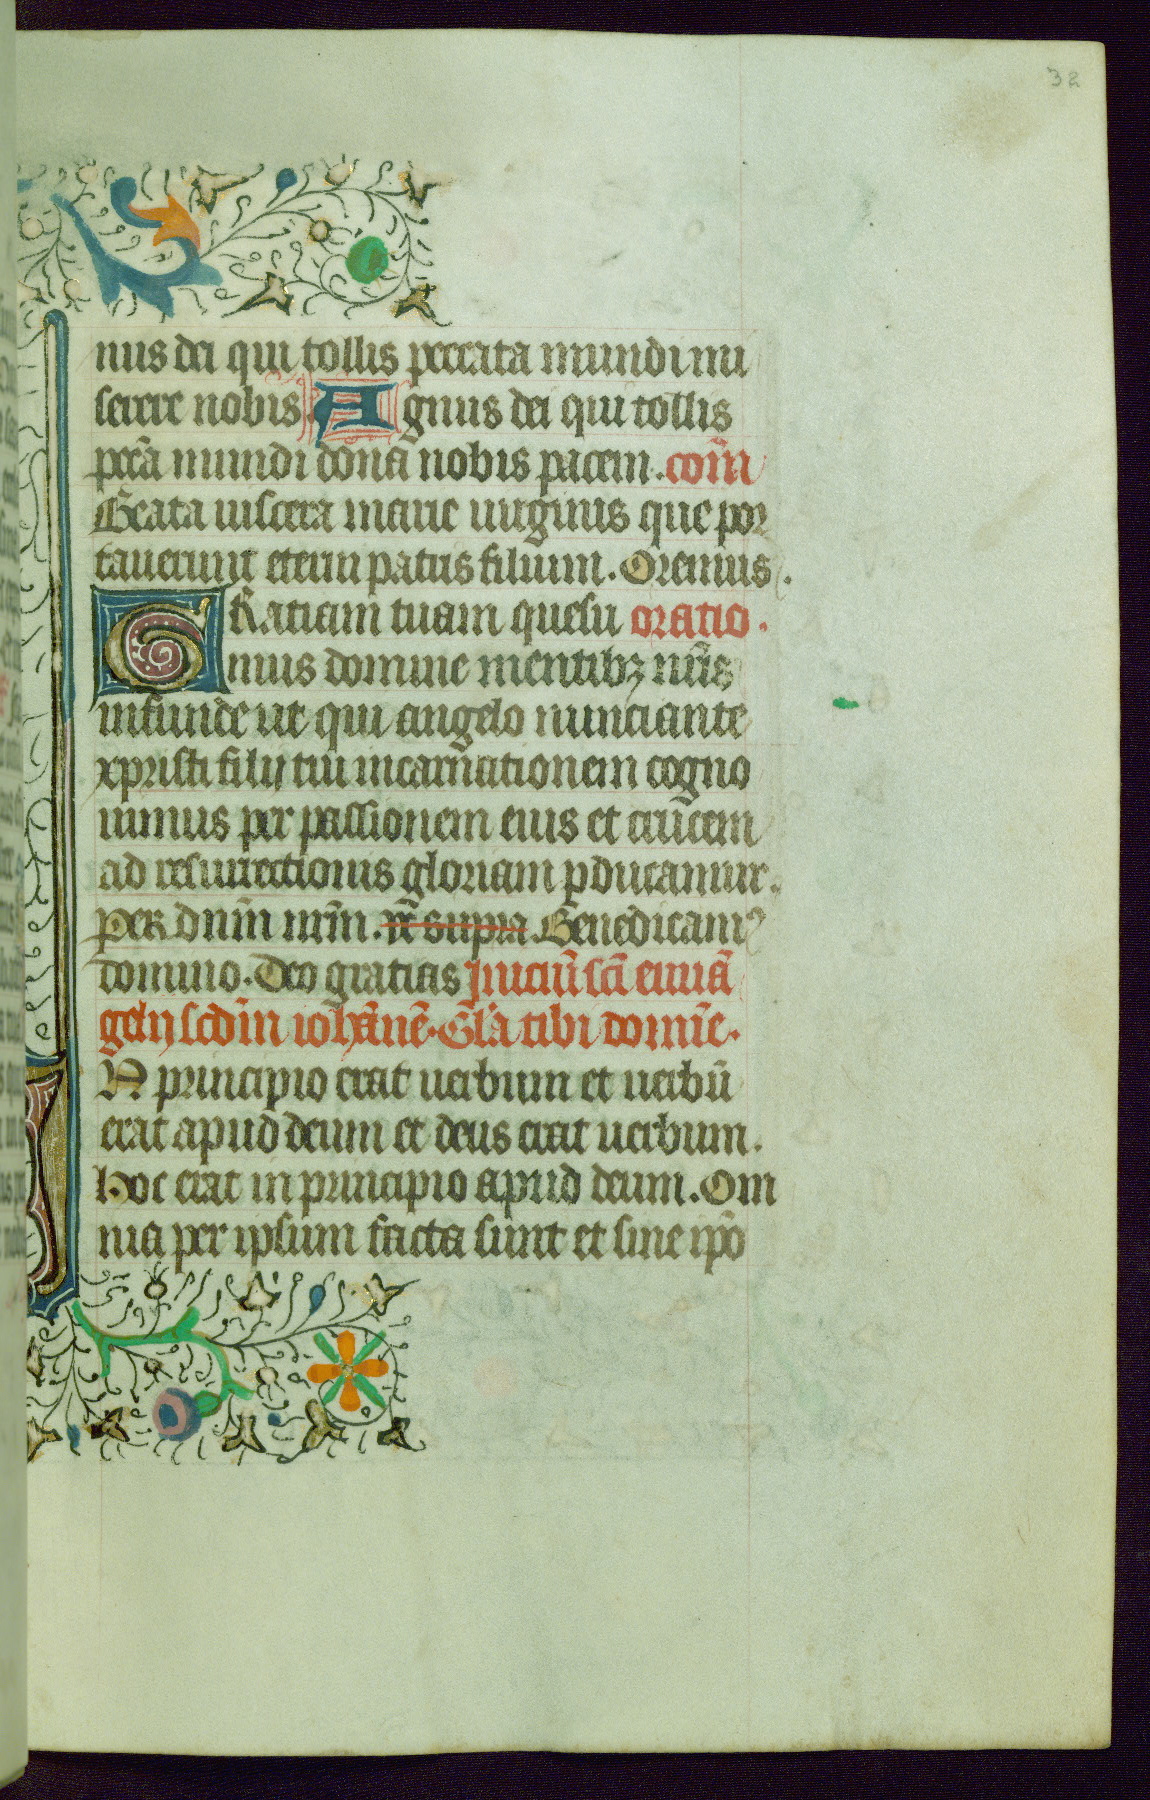 32
nus dei qui tollis peccata mundi mi
serere nobis. Agnus dei qui tollis
pctā mundi dona nobis pacem. com̄
Beata uiscera marie uirginis que por
tauerunt eterni patris filium. Oremus.
GRatiam tuam quesu oratio.
mus domine mentibꝫ nr̄is
infunde ut qui angelo nunciante
xpristi filij tui incarnationem cogno
uimus per passionem eius et crucem
ad resurrectionis gloriam ꝑducamur.
Per dnm̄ nrm̄. ut supra Benedicamꝰ
domino. Deo gratias Iniciū scī euuā
gelij scdm̄ iohānē. Gl̄a tibi domīe.
IN principio erat uerbum et uerbū
erat apud deum et deus erat uerbum.
Hoc erat in principio apud deum. Om
nia per ipsum facta sunt et sine ip̄o